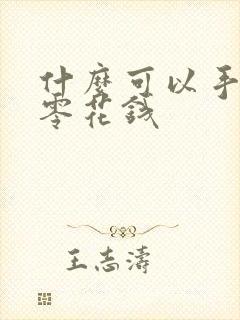 什麼可以手
零花錢
王志濤